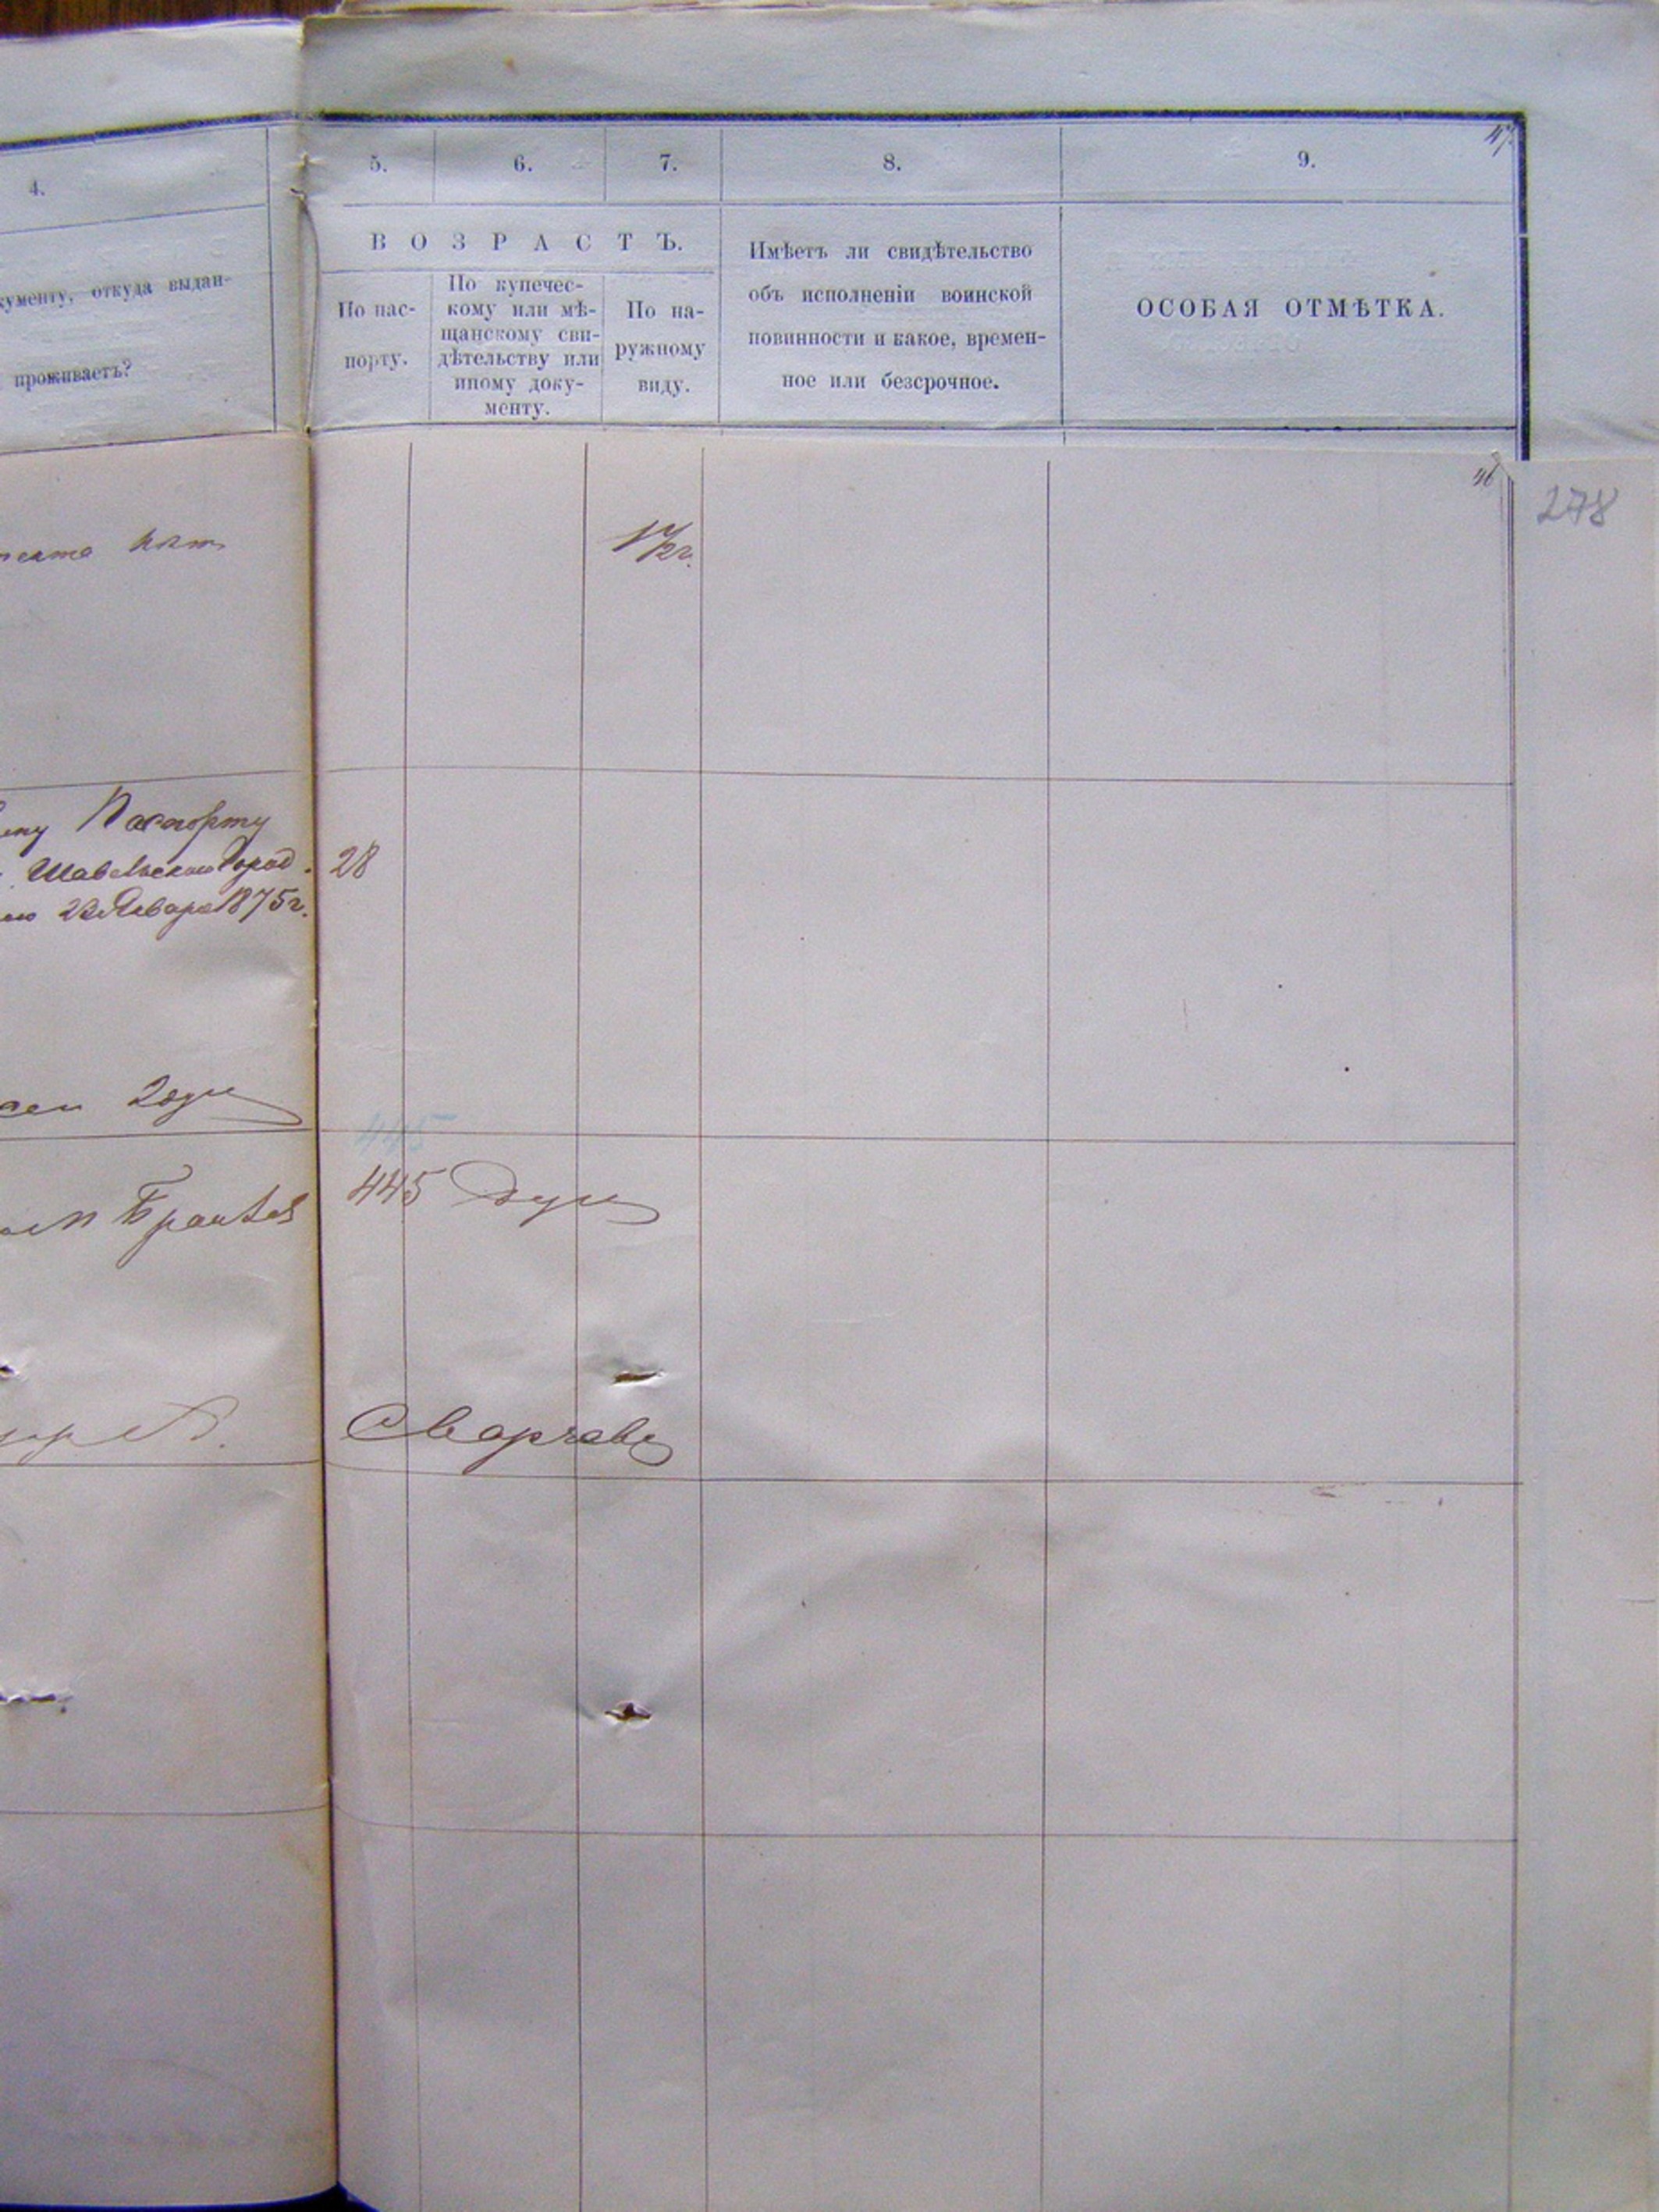 47.
4. 5. 6. 7. 8. 9.
кументу, откуда выдан-
проживаетъ?
ВОЗРАСТЪ.
По пас-
порту.
По купечес-
кому или мѣ-
щанскому сви-
дѣтельству или
иному доку-
менту.
По на-
ружному
виду.
Имѣетъ ли свидѣтельство
объ исполненіи воинской
повинности и какое, времен-
ное или безсрочное.
ОСОБАЯ ОТМѢТКА.
46
278
1½г.
Паспорту
Шавельскою Город. 28
23 Января 1875 г.
445
445 Душ